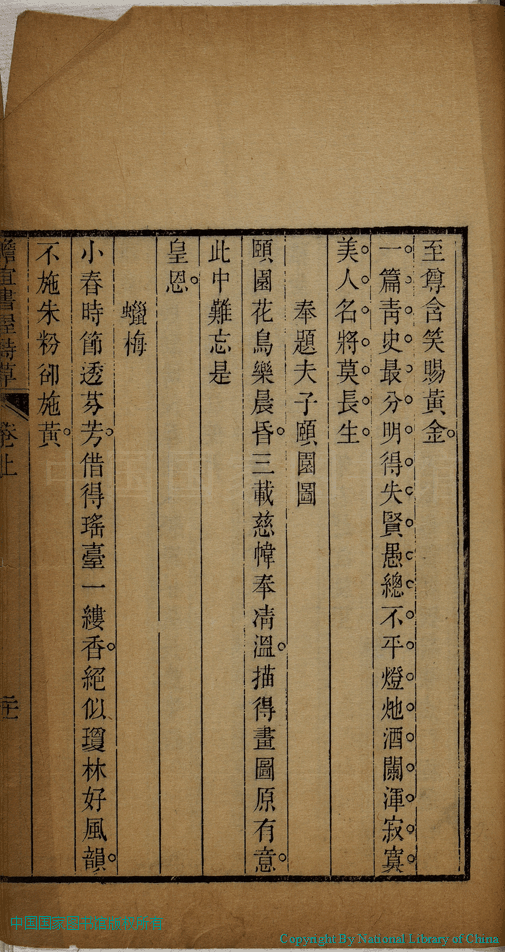 至尊含笑賜黃金。
一篇青史最分明得失賢愚總不平燈灺酒闌渾寂寞
美人名將莫長生
奉題夫子頤園圖
頤園花鳥樂晨昏。三載慈幃奉凊溫。描得畫圖原有意。
此中難忘是
皇恩。
蠟梅
小春時節透芬芳。借得瑤臺一縷香。絕似瓊林好風韻。
不施朱粉卻施黃。
書屋詩草
卷上
中国国家
Copyright By National Library of China